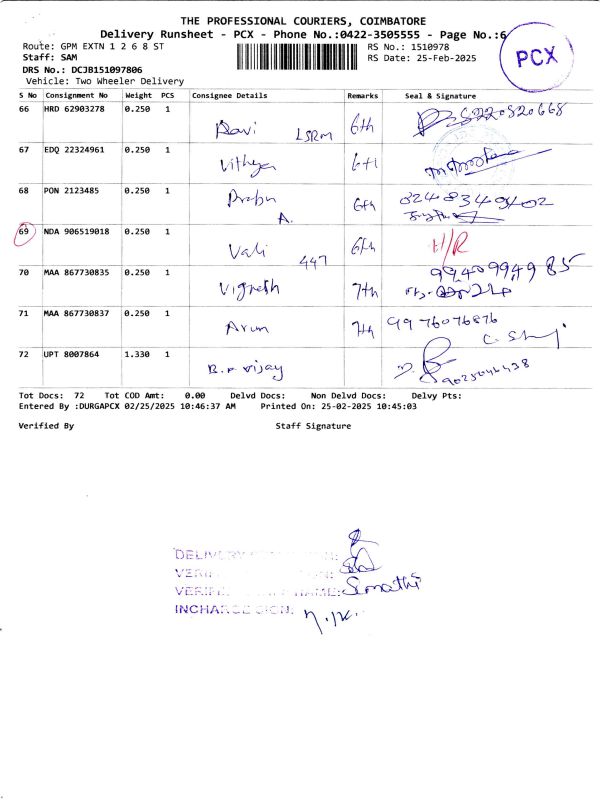 THE PROFESSIONAL COURIERS, COIMBATORE
Delivery Runsheet - PCX - Phone No.:0422-3505555 - Page No.:6
PCX
Route: GPM EXTN 1 2 6 8 ST RS No.: 1510978
Staff: SAM RS Date: 25-Feb-2025
DRS No.: DCJB151097806
Vehicle: Two Wheeler Delivery
S No Consignment No Weight PCS Consignee Details Remarks Seal & Signature
66 HRD 62903278 0.250 1 Ravi LSRM 6th 8220520668
67 EDQ 22324961 0.250 1 Vithya 6th
68 PON 2123485 0.250 1 Prabu A. 6th 8248340402
69 NDA 906519018 0.250 1 Vali 447 6th H/R
70 MAA 867730835 0.250 1 Vignesh 7th 9940994985
71 MAA 867730837 0.250 1 Arun 7th 9976076876
72 UPT 8007864 1.330 1 vijay 9025646438
Tot Docs: 72 Tot COD Amt: 0.00 Delvd Docs: Non Delvd Docs: Delvy Pts:
Entered By :DURGAPCX 02/25/2025 10:46:37 AM Printed On: 25-02-2025 10:45:03
Verified By Staff Signature
DELIVERY
NAME: Sumathi
INCHARGE SIGN: